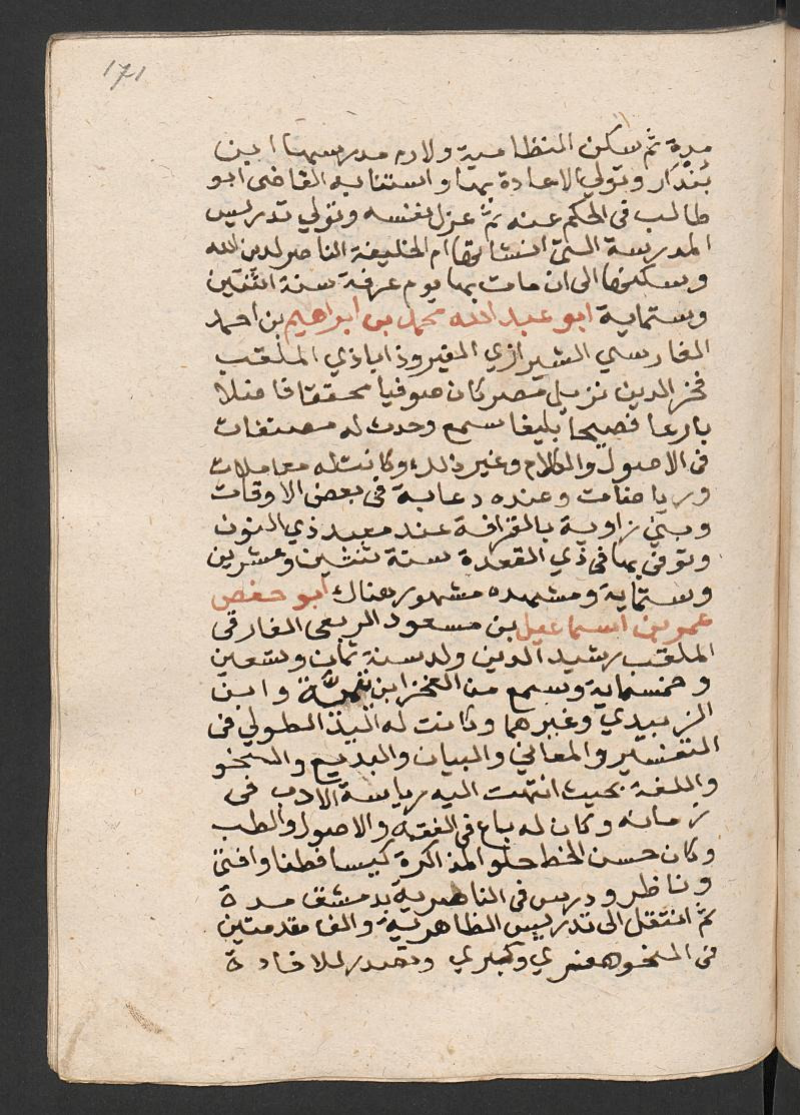 171
مدة ثم سكن النظامية ولازم مدرسها ابن
بندار وتولي الاعادة بها واستنابه القاضى ابو
طالب فى الحكم عنه ثم عزل نفسه وتولي تدريس
المدرسة التى انشاتها ام الخليفة الناصر لدين الله
وسكنها الى ان مات بها يوم عرفة سنة اثنتين
وستماية ابو عبد الله محمد بن ابراهيم بن احمد
الفارسي الشيرازي الفيروذاباذي الملقب
فخر الدين نزيل مصر كان صوفيا محققا فاضلا
بارعا فصيحا بليغا سمع وحدث له مصنفات
فى الاصول والكلام وغير ذلك وكانت له معاملات
ورياضات وعنده دعابة فى بعض الاوقات
وبنى زاوية بالقرافة عند معبد ذي النون
وتوفى بها فى ذي القعدة سنة ثنتين وعشرين
وستماية ومشهده مشهور هناك ابو حفص
عمر بن اسماعيل بن مسعود الربعى الفارقى
الملقب رشيد الدين ولد سنة ثمان وتسعين
وخمسماية وسمع من الفخر ابن تيمية وابن
الزبيدي وغيرهما وكانت له اليد الطولي فى
التفسير والمعاني والبيان والبديع والنحو
واللغة بحيث انتهت اليه رياسة الادب فى
زمانه وكان له باع فى الفقه والاصول والطب
وكان حسن الخط حلو المذاكرة كيسا فطنا وافتى
وناظر ودرس فى الناصرية بدمشق مدة
ثم انتقل الى تدريس الظاهرية والف مقدمتين
فى النحو صغري وكبري وتصدر للافادة